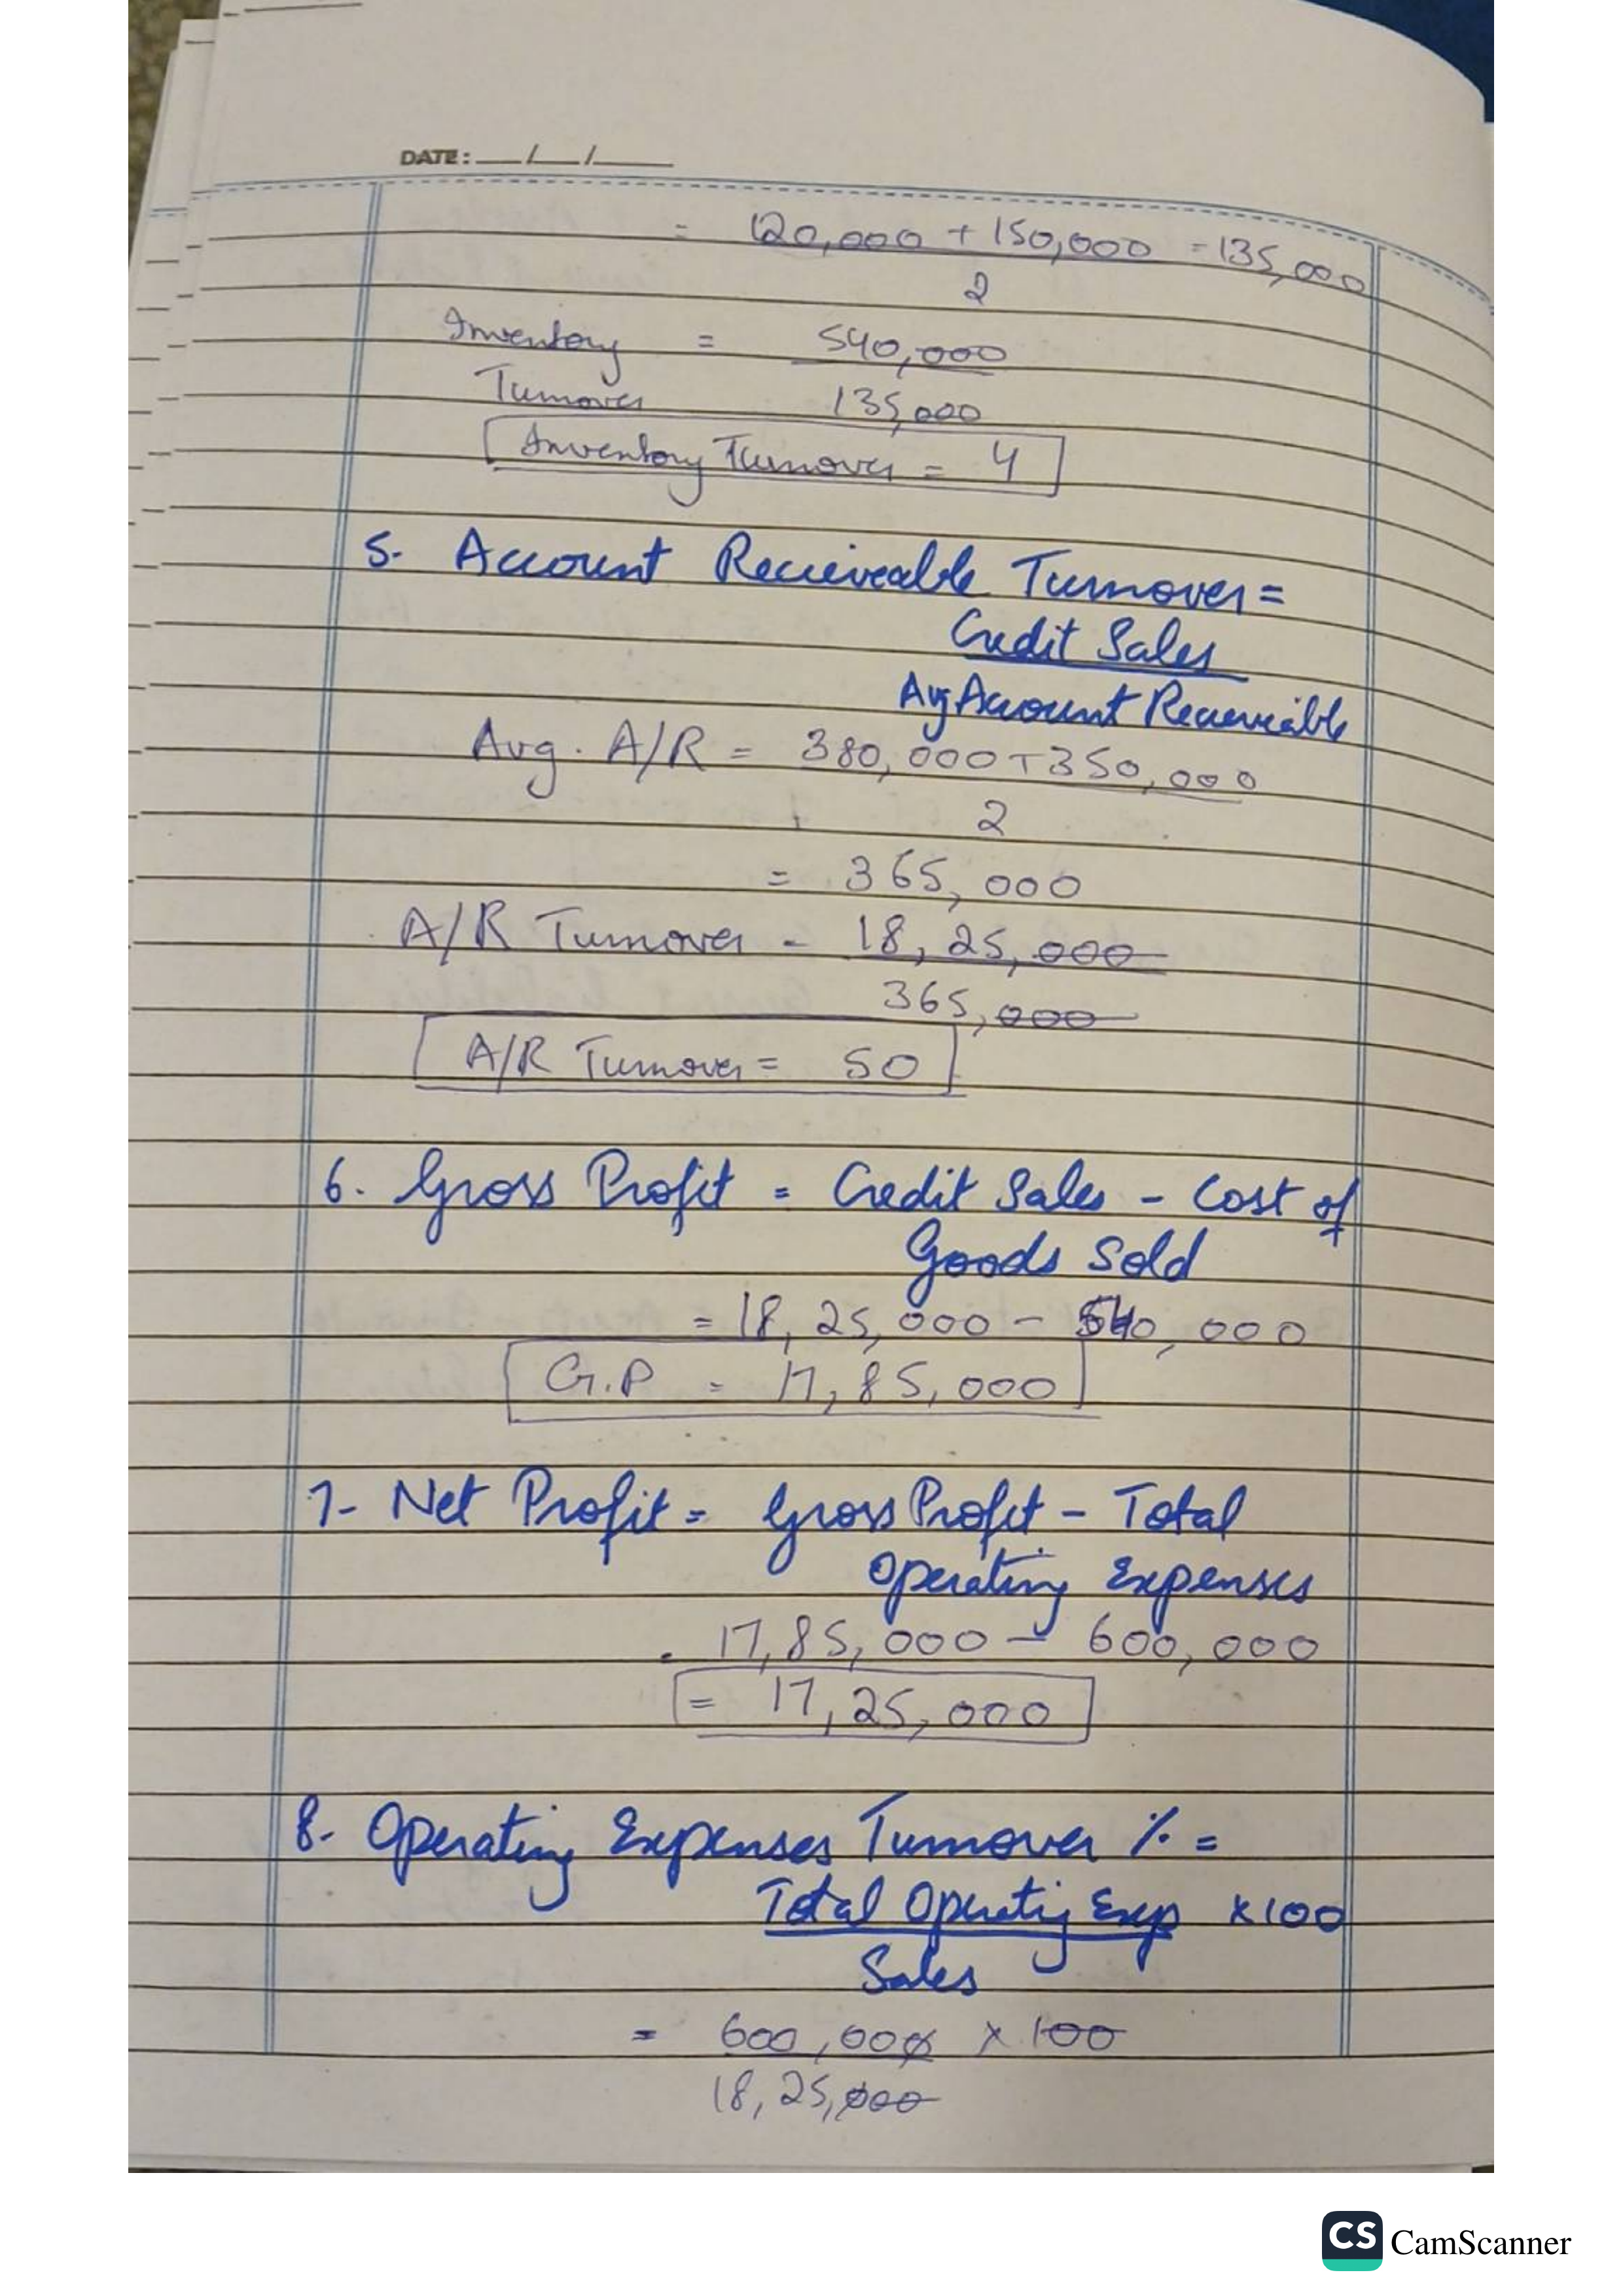 DATE: __/__/____
= 120,000 + 150,000 = 135,000
2
Inventory = 540,000
Turnover 135,000
Inventory Turnover = 4
5. Account Recieveable Turnover =
Credit Sales
Avg Account Recieveable
Avg. A/R = 380,000 + 350,000
2
= 365,000
A/R Turnover = 18,25,000
365,000
A/R Turnover = 50
6. Gross Profit = Credit Sales - Cost of
Goods Sold
= 18,25,000 - 540,000
G.P = 17,85,000
7- Net Profit = Gross Profit - Total
Operating Expenses
= 17,85,000 - 600,000
= 17,25,000
8. Operating Expenses Turnover % =
Total Operatig Exp x 100
Sales
= 600,000 x 100
18,25,000
CS CamScanner